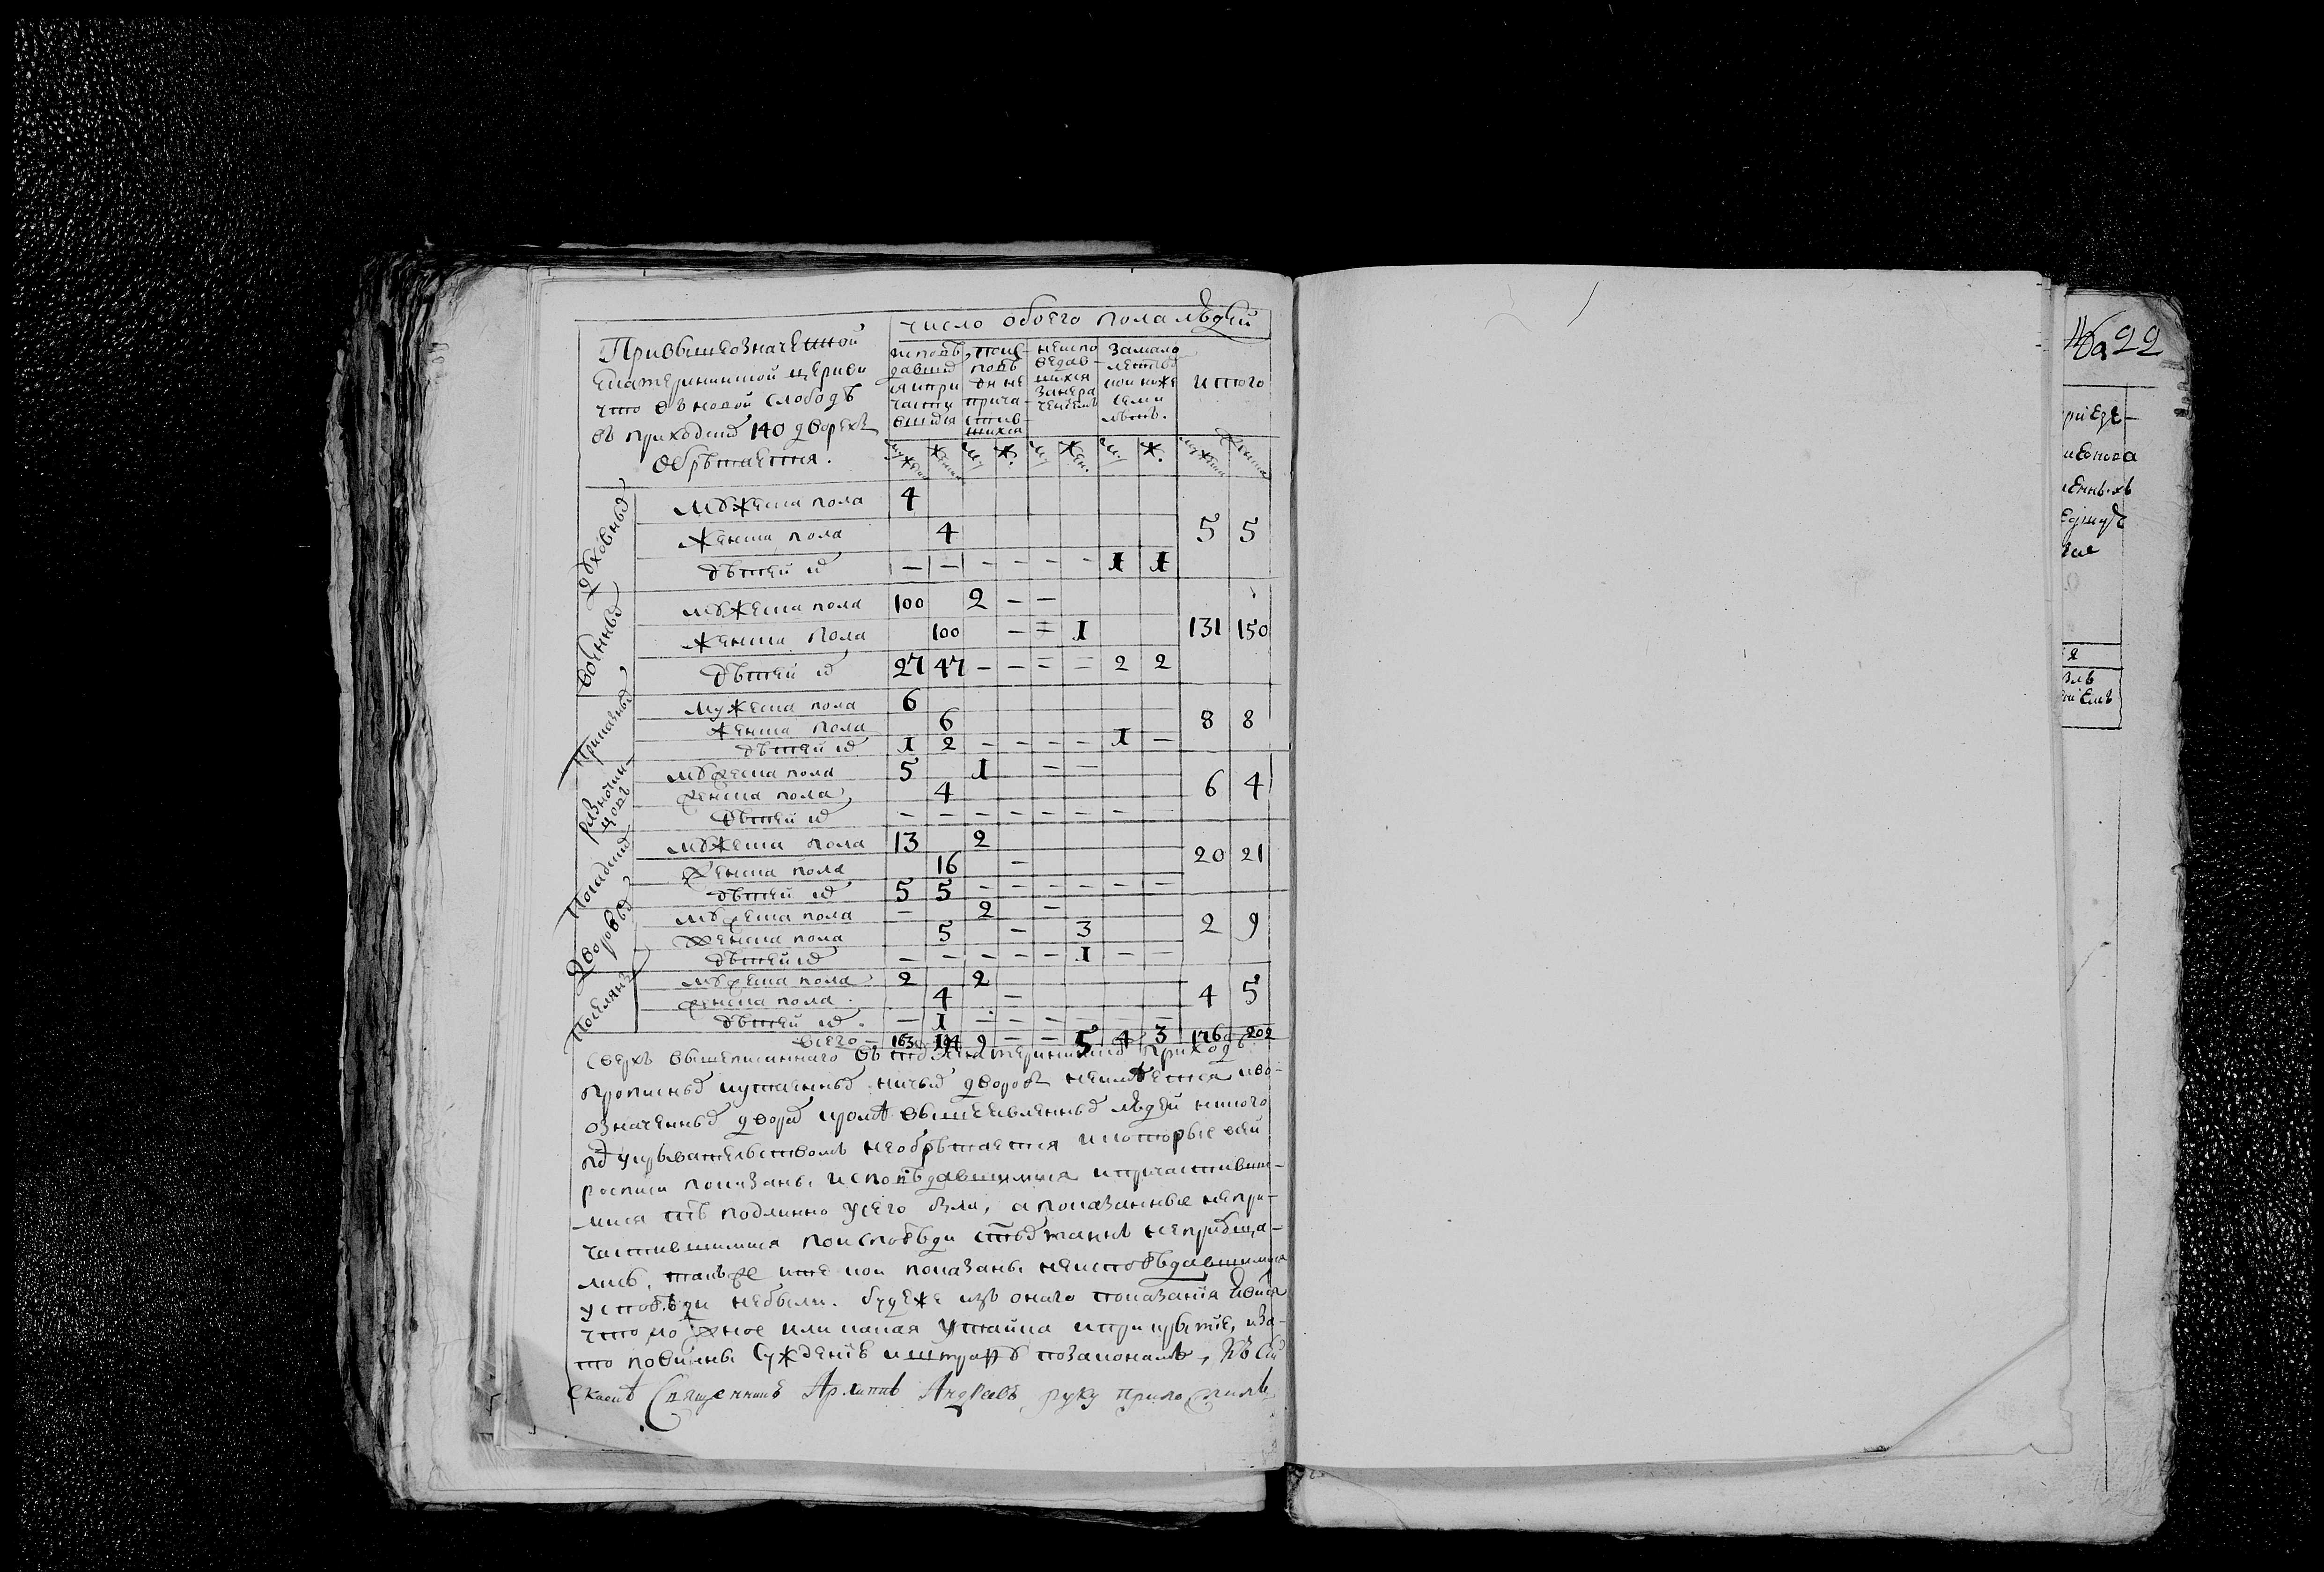 число обоего пола людей
Привышеозначенной
екатерининской церкви
что в новой слободѣ
въ приходи 140 дворехъ
обрѣтается.
исповѣ
давши
ися и при
части
вшихся
испо
не при
ча
стив
шихся
неиспо
ведав
шихся
за нера
чениемъ
замало
летств
ниже
семи
лѣтъ.
итого
мужеска женска м ж. м жен. м ж. мужска женска
духовныхъ
мужеска пола 4
женска пола 4 5 5
дѣтей их — — — — — — 1 1
военныхъ
мужеска пола 100 2 — —
женска пола 100 — = 1 131 150
дѣтей их 27 47 — — = — 2 2
Приказныхъ
мужеска пола 6
женска пола 6 8 8
дѣтей их 1 2 — — — — 1 —
разночин-
цовъ
мужеска пола 5 1 — —
женска пола 4 6 4
дѣтей их — — — — — — —
Посадских
мужеска пола 13 2
женска пола 16 — 20 21
дѣтей их 5 5 — — — — — —
Дворовых
мужеска пола — 2 —
женска пола 5 — 3 2 9
дѣтей их — — — — — 1 — —
Поселянъ
мужеска пола 2 2
женска пола 4 — 4 5
дѣтей их — 1 — — — — — —
всего — 163 194 9 — — 5 4 3 176 202
сверхъ вышеписаннаго въ том екатерининском приходѣ
прописных и утаенных ничьих дворов неимѣется и во
означенных дворах кромѣ вышеявленных людей никого
под укрывательствомъ необрѣтается и которые в сей
росписи показаны исповѣдавшимися и причастивши-
мися тѣ подлинно у сего были, а показанные непри-
частившимися по исповѣди святых таинъ неприобща-
лись, такъ же и те кои показаны неисповѣдавшимися
у исповѣди небыли. буде же изъ онаго показания явится
что ложное или какая утайка и прикрытие, и за-
то повинны суждению и штрафу по законамъ, Къ сей
скаске Священникъ Архиппъ Андреевъ руку приложилъ
22